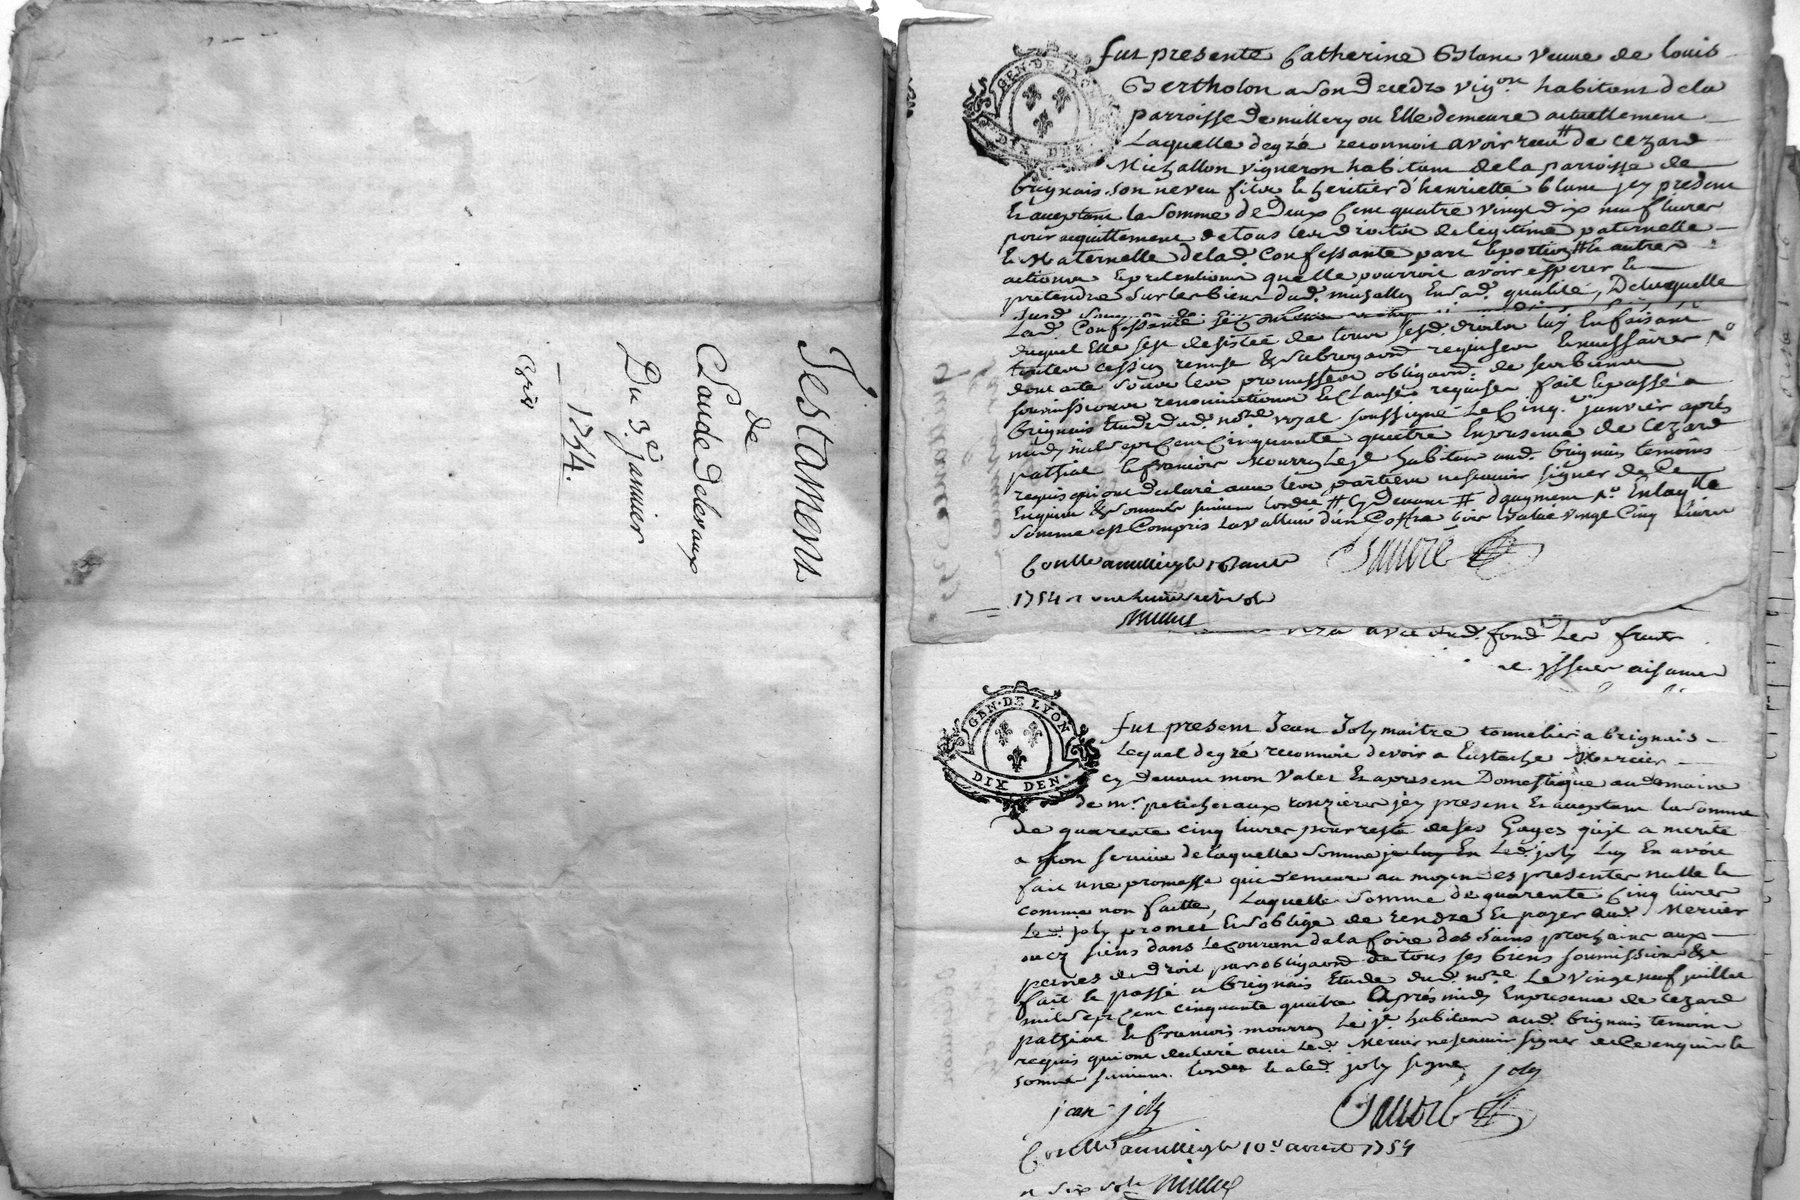 Testament
de
Claude Deleraux
Du 3e. janvier
1754.
GEN. DE LYON
DIX DEN.
fut presente Catherine Blanc veuve de louis
Bertholon a son decedz vig.on habitant de la
parroisse de millery ou Elle demeure actuellement
Laquelle de gré reconnoit avoir receu # de cezard
Michallon vigneron habitant de la parroisse de
brignais son neveu fils et heritier d'henriette blanc jcy present
Et aceptant la somme de Deux Cent quatre vingt dix neuf livres
pour acquittement de tous les droits de legitime paternelle
et Maternelle de lad. Confessante part et portion # et autres
actions et pretentions quelle pourroit avoir esperer et
pretendre sur les biens dud. michallon En sad. qualité, De laquelle
Lad. Confessante
duquel Elle s'est desistée de tous sesd. droits luy En faisant
toutes cession remise & subrogaon. requises et necessaires
dont acte sous leur promesses obligaons. de leurs biens
soumissions renonciations et Clauses requises fait et passé a
brignais Etude dud. no.re royal soussigné Le Cinq.e janvier après
midy mil sept Cent Cinquante quatre En presence de cezard
pathiat et francois Mourron Le je. habitans aud. brignais temoins
requis qui ont declaré avec les parties ne scavoir signer de Ce
Enquis & sommés suivant l'ordce. # Cy devant # d'augment En laq.lle
somme est Compris la valleur d'un Coffre bois valué vingt Cinq livres
Con.llé a millery le 16 janvier
1754
avec dud. fond. Les fruits
et yssues aisances
GEN. DE LYON
DIX DEN.
fut present Jean Joly maitre tonnelier a brignais
Lequel de gré reconnoit devoir a Eustache Mercier
cy devant mon Valet Et a present Domestique au domaine
de mr. petichevaux jcy present Et aceptant la somme
De quarente cinq livres pour reste de ses Gages qu'jl a merité
a mon service de laquelle somme je luy En Led. joly luy En avoit
fait une promesse qui demeure au moyen des presentes nulle et
comme non faitte, Laquelle somme de quarente Cinq livres
Led. joly promet et s'oblige de rendre et payer aud. Mercier
ou es siens dans le Courant de la foire des Saints prochaine aux
peines de droit par obligaon. de tous ses biens soumissions &a
fait et passé a brignais Etude dud. no.re Le vingt neuf juillet
mil sept Cent cinquante quatre Après midy En presence de cezard
pathiat et francois mourron Le je. habitans aud. brignais temoins
requis qui ont declaré avec Led. Mercier ne scavoir signer de Ce enquis et
sommés suivant l'ordce. Et a led. joly signé, joly
jean joly
Con.llé a millery le 10e. aoust 1754
a six sols